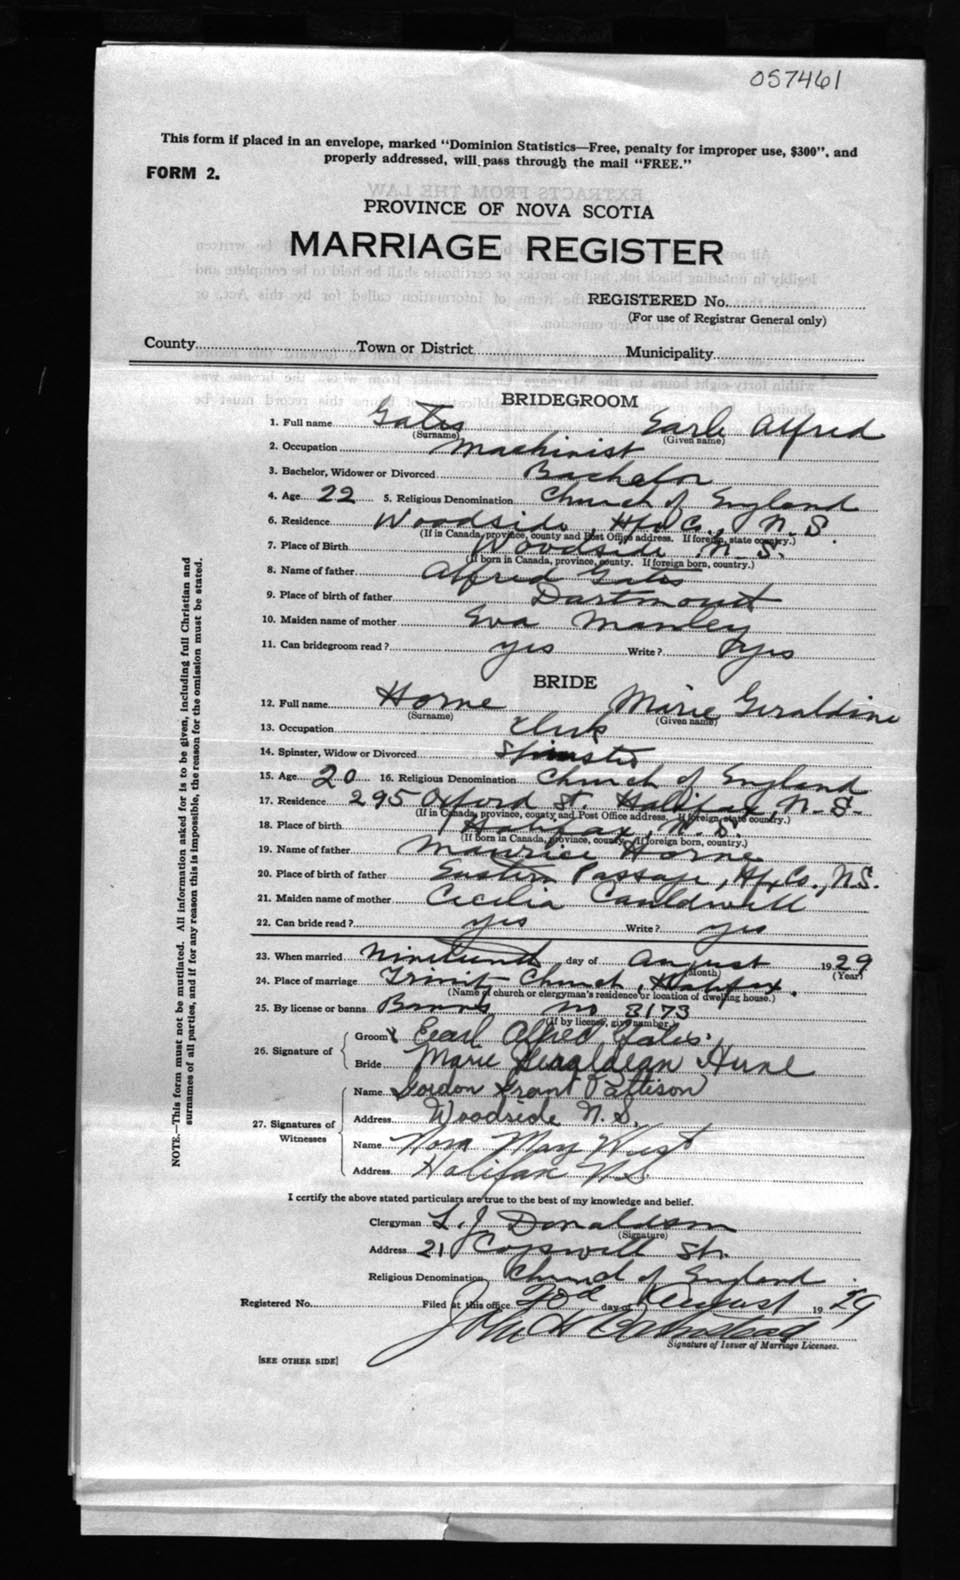 057461
This form if placed in an envelope, marked "Dominion Statistics—Free, penalty for improper use, $300", and
properly addressed, will pass through the mail "FREE."
FORM 2.
PROVINCE OF NOVA SCOTIA
MARRIAGE REGISTER
REGISTERED No.
(For use of Registrar General only)
County Town or District Municipality
BRIDEGROOM
1. Full name Gates Earle Alfred
(Surname) (Given name)
2. Occupation Machinist
3. Bachelor, Widower or Divorced Bachelor
4. Age 22 5. Religious Denomination Church of England
6. Residence Woodside, Hfx Co., N.S.
(If in Canada, province, county and Post Office address. If foreign, state country.)
7. Place of Birth Woodside N.S.
(If born in Canada, province, county. If foreign born, country.)
8. Name of father Alfred Gates
9. Place of birth of father Dartmout
10. Maiden name of mother Eva Manley
11. Can bridegroom read? yes Write? yes
BRIDE
12. Full name Horne Marie Geraldine
(Surname) (Given name)
13. Occupation Clerk
14. Spinster, Widow or Divorced Spinster
15. Age 20 16. Religious Denomination Church of England
17. Residence 295 Oxford St. Halifax, N.S.
(If in Canada, province, county and Post Office address. If foreign, state country.)
18. Place of birth Halifax, N.S.
(If born in Canada, province, county. If foreign born, country.)
19. Name of father Maurice Horne
20. Place of birth of father Eastern Passage, Hfx Co., N.S.
21. Maiden name of mother Cecilia Cauldwell
22. Can bride read? yes Write? yes
23. When married Nineteenth day of August 1929
(Month) (Year)
24. Place of marriage Trinity Church, Halifax.
(Name of church or clergyman's residence or location of dwelling house.)
25. By license or banns Banns No 3173
(If by license, give number.)
26. Signature of Groom Earl Alfred Gates
Bride Marie Geraldean Hurne
27. Signatures of Witnesses Name Gordon Grant Pattison
Address Woodside N.S.
Name Nora May West
Address Halifax NS
I certify the above stated particulars are true to the best of my knowledge and belief.
Clergyman L. J. Donaldson
(Signature)
Address 21 Cogswell St.
Religious Denomination Church of England
Registered No. Filed at this office 22d day of August 1929
John H
Signature of Issuer of Marriage Licenses.
[SEE OTHER SIDE]
NOTE.—This form must not be mutilated. All information asked for is to be given, including full Christian and
surnames of all parties, and if for any reason this is impossible, the reason for the omission must be stated.